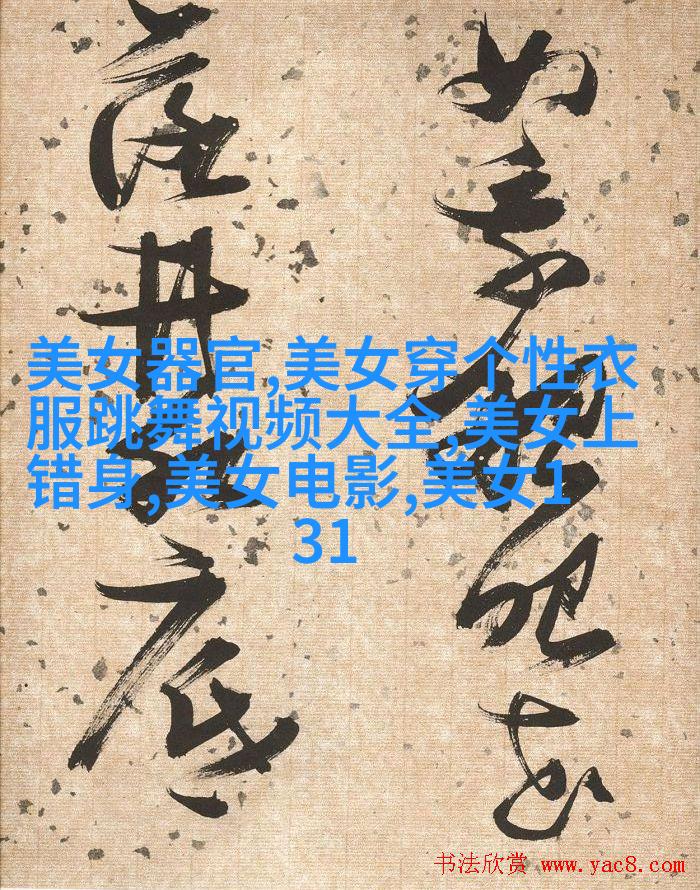 如
落井底
美女器官,美女穿个性衣
服跳舞视频大全,美女上
错身,美女电影,美女1
31
书法欣赏 www.yac8.com